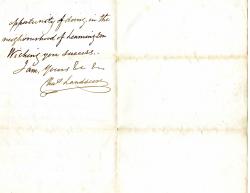 opportunity of doing, in the
neighbourhood of Leamington
Wishing you success..
I am, Yours &c &c
Chas Landseer